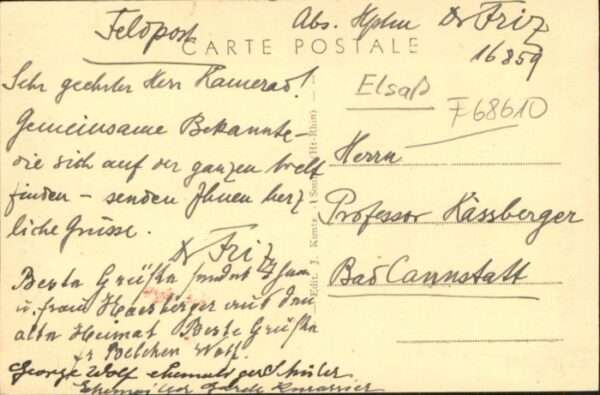 Feldpost
Abs. Hptm Dr Friz
16859
CARTE POSTALE
Elsaß
F 68610
Sehr geehrter Herr Kamerad!
Gemeinsame Bekannte –
die sich auf der ganzen Welt
finden – senden Ihnen herz
liche Grüsse.
Dr Friz
Beste Grüße sendet Ihnen
u. frau Kaesberger aus den
alte Heimat Beste Grüße
Belchen Wolf
George Wolf ehemaliger Schüler
Edit. J. Kuntz, (Ht-Rhin)
Herrn
Professor Kässberger
Bad Cannstatt